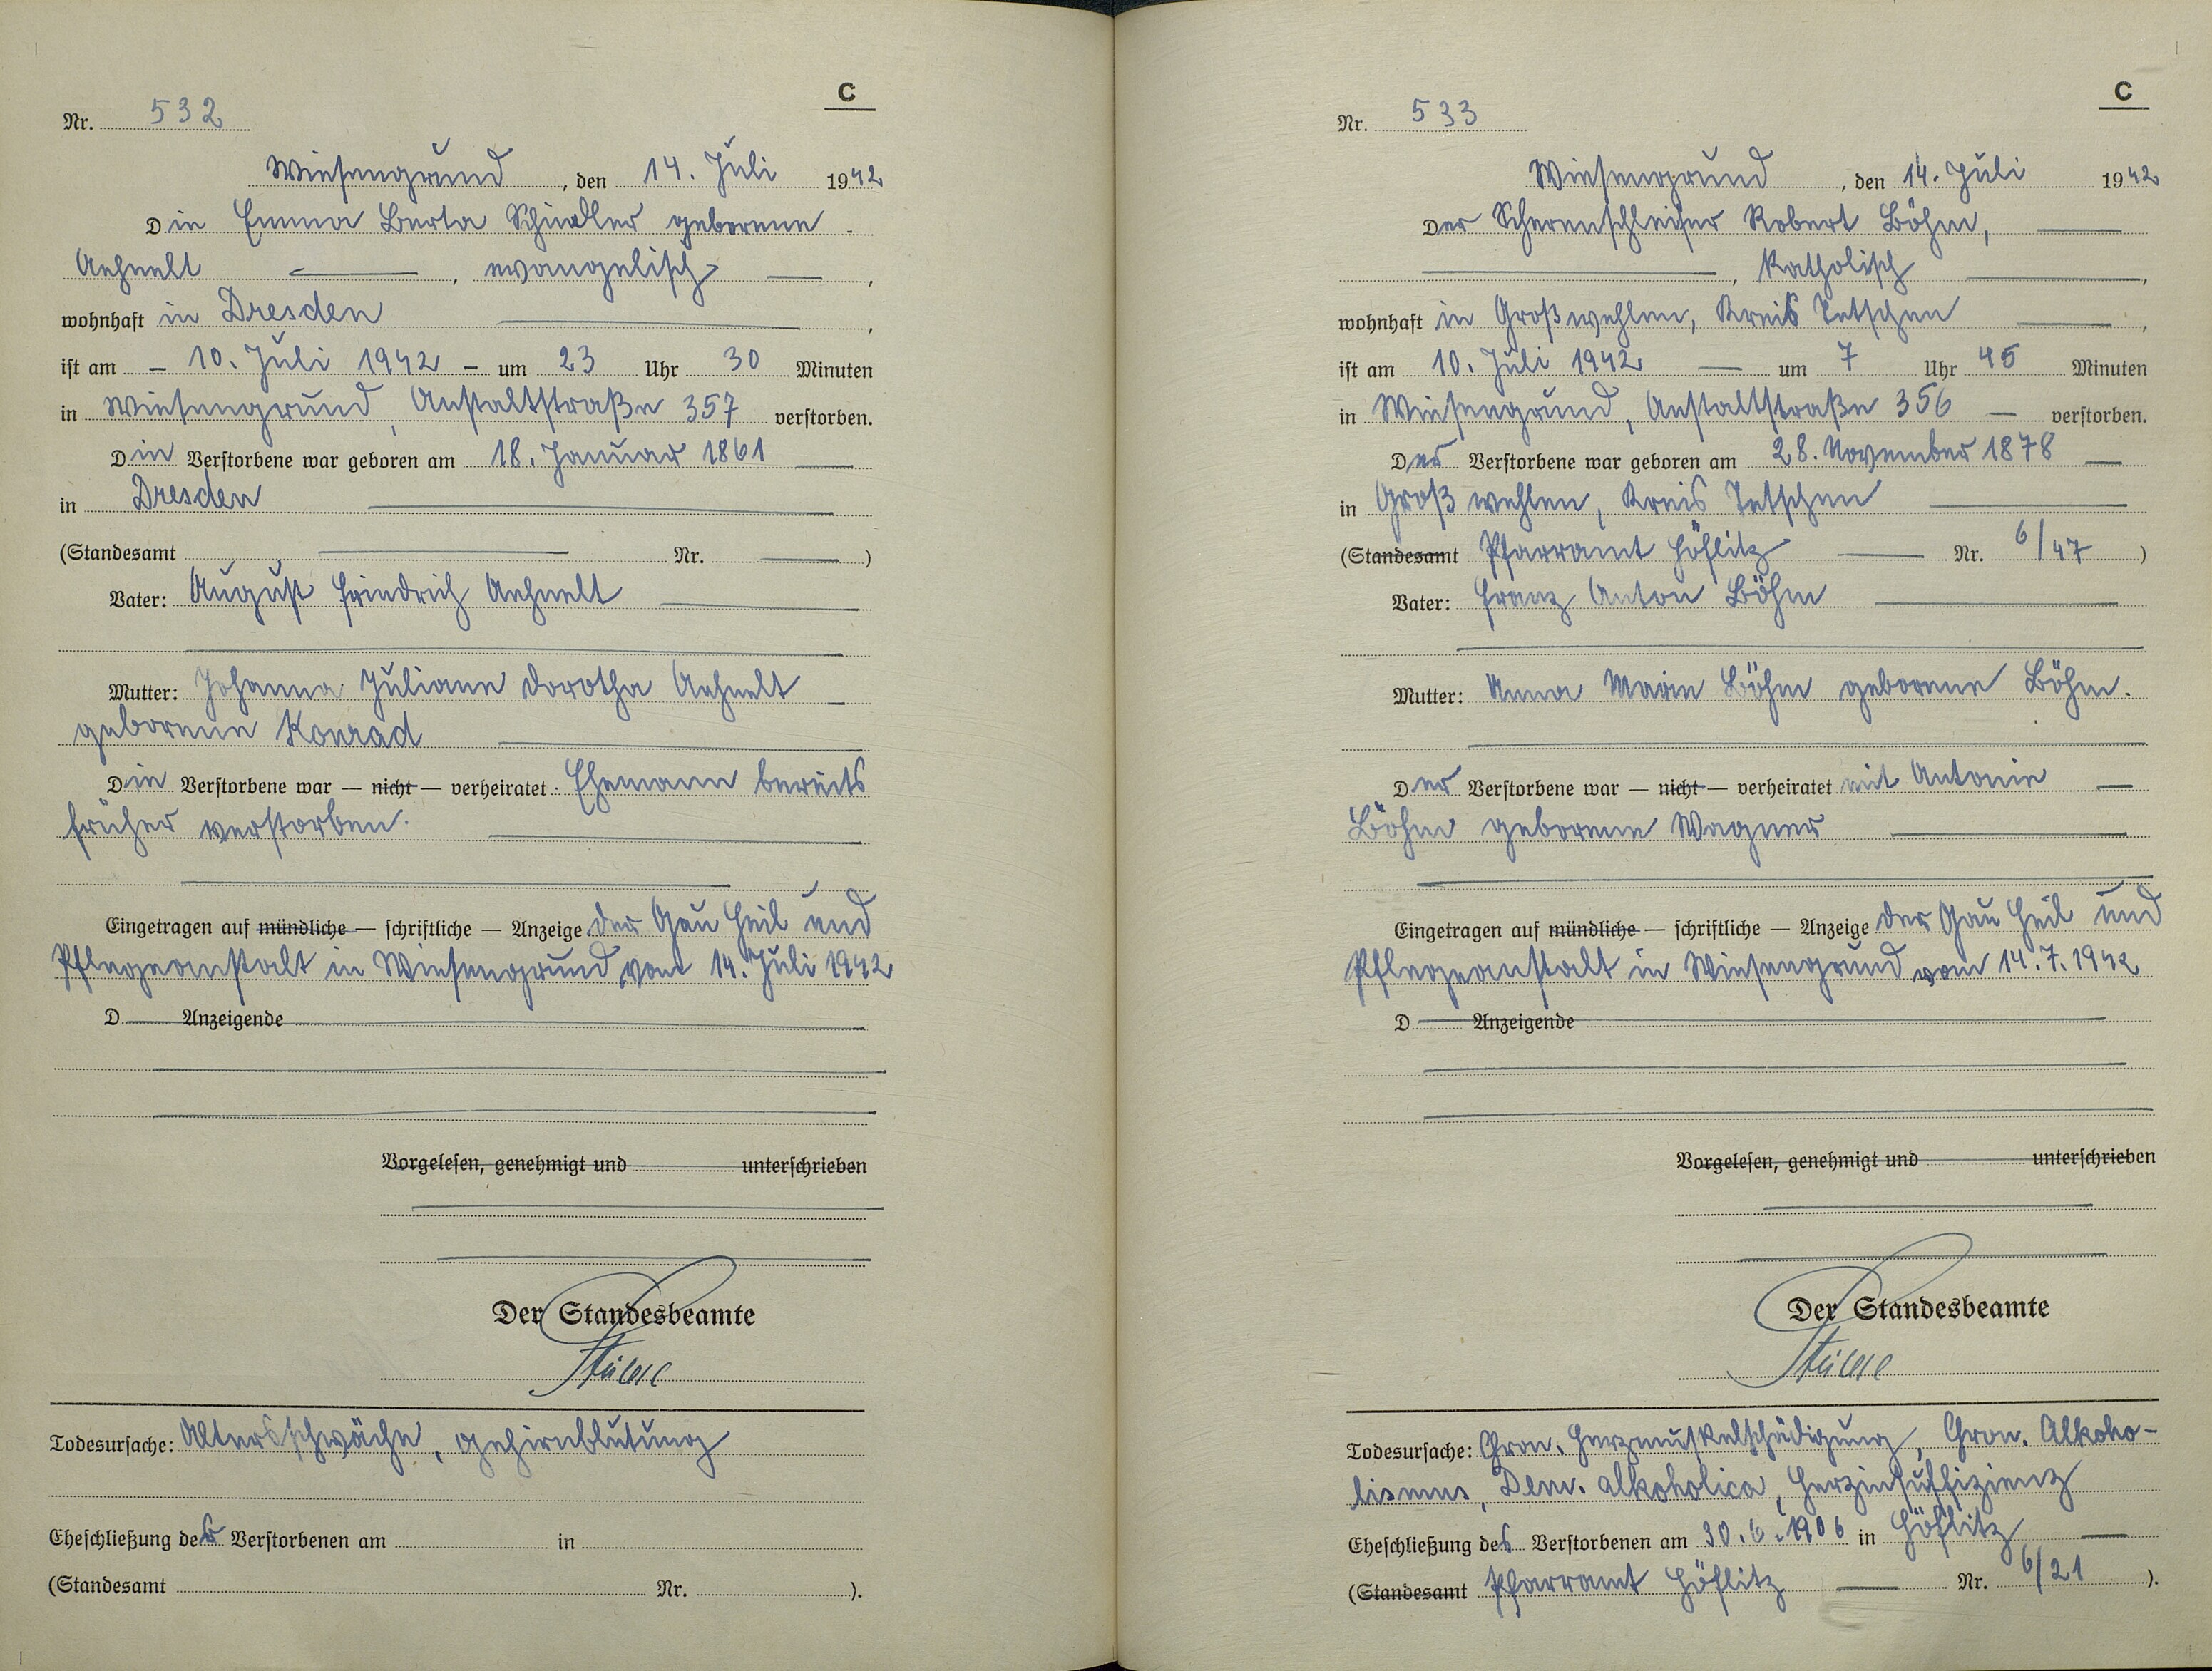 C
Nr. 532
Wiesengrund, den 14. Juli 1942
Die Emma Berta Schindler geborene
Aehnelt, evangelisch,
wohnhaft in Dresden,
ist am - 10. Juli 1942 - um 23 Uhr 30 Minuten
in Wiesengrund, Anstaltstraße 357 verstorben.
Die Verstorbene war geboren am 18. Januar 1861
in Dresden
(Standesamt Nr. )
Vater: August Friedrich Aehnelt
Mutter: Johanna Juliane Dorotha Aehnelt
geborene Konrad
Die Verstorbene war — nicht — verheiratet. Ehemann bereits
früher verstorben.
Eingetragen auf mündliche — schriftliche — Anzeige der Gau Heil und
Pflegeanstalt in Wiesengrund vom 14. Juli 1942
D Anzeigende
Vorgelesen, genehmigt und unterschrieben
Der Standesbeamte
Todesursache: Altersschwäche, Gehirnblutung
Eheschließung der Verstorbenen am in
(Standesamt Nr. ).
C
Nr. 533
Wiesengrund, den 14. Juli 1942
Der Scherenschleifer Robert Böhm,
, katholisch,
wohnhaft in Großwehlen, Kreis Tetschen,
ist am 10. Juli 1942 um 7 Uhr 45 Minuten
in Wiesengrund, Anstaltstraße 356 — verstorben.
Der Verstorbene war geboren am 28. November 1878
in Großwehlen, Kreis Tetschen
(Standesamt Pfarramt Höflitz Nr. 6/47)
Vater: Franz Anton Böhm
Mutter: Anna Marie Böhm geborene Böhm.
Der Verstorbene war — nicht — verheiratet mit Antonie
Böhm geborene Wagner
Eingetragen auf mündliche — schriftliche — Anzeige der Gau Heil und
Pflegeanstalt in Wiesengrund vom 14.7.1942
D Anzeigende
Vorgelesen, genehmigt und unterschrieben
Der Standesbeamte
Todesursache: Chron. Herzmuskelschädigung, Chron. Alkoho-
lismus, Dem. alkoholica, Herzinsuffizienz
Eheschließung des Verstorbenen am 30.6.1906 in Höflitz
(Standesamt Pfarramt Höflitz Nr. 6/21).